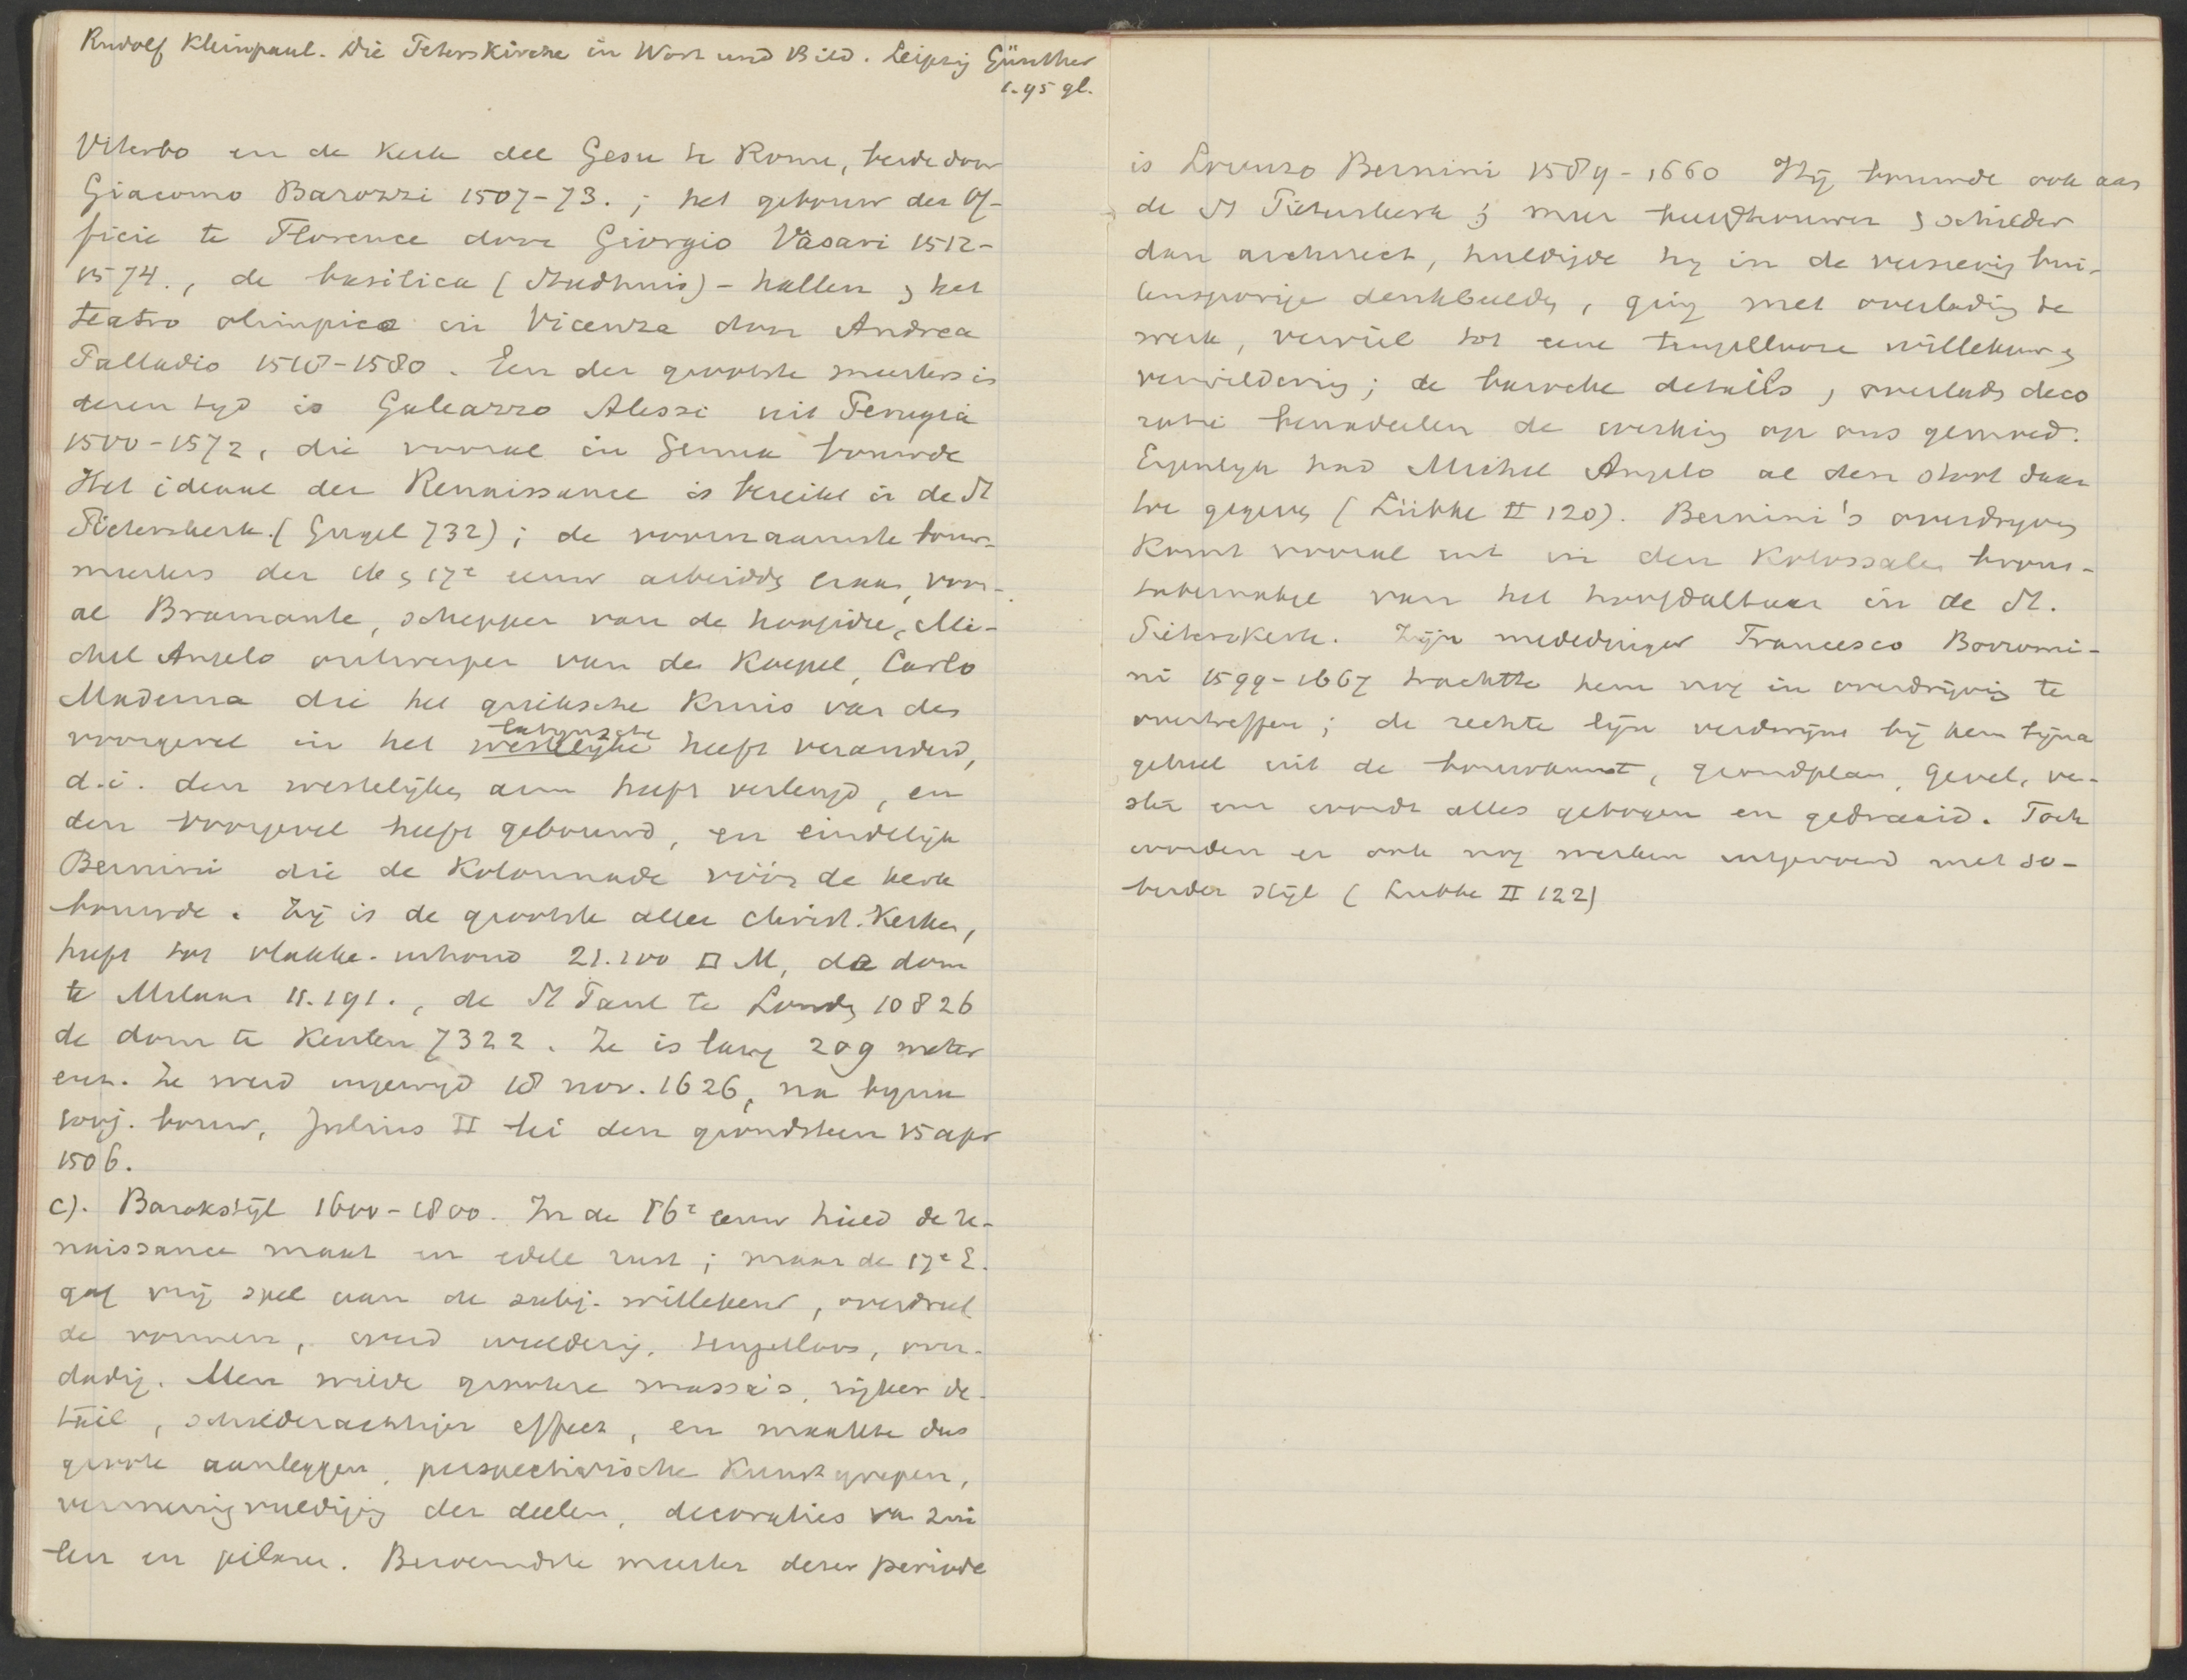 Rudolf Kleinpaul. Die Peterskirche in Wort und Bild. Leipzig Günther
1.95 gl.
Viterbo en de kerk del Gesu te Rome, beide door
Giacomo Barozzi 1507-73. ; het gebouw der Of-
ficie te Florence door Giorgio Vasari 1512-
1574., de basilica (Stadhuis) - hallen & het
teatro olimpico in Vicenza door Andrea
Palladio 1518-1580. Een der grootste meesters in
deren tyd is Galeazzo Alessi uit Perugia
1500-1572, die vooral in Genua bouwde
Het ideaal der Renaissance is bereikt in de St
Pieterskerk. (Gugel 732) ; de voornaamste bouw-
meesters der 16 & 17e eeuw arbeidds eraan, voor-
al Bramante, schepper van de hoofdidee, Mi-
chel Angelo ontwerper van den Koepel, Carlo
Maderna die het grieksche Kruis van den
voorgevel in het westelijke latynsche heeft veranderd,
d.i. den westelijken arm heeft verlengd, en
den voorgevel heeft gebouwd, en eindelijk
Bernini die de Kolonnade vóór de kerk
bouwde. Zij is de grootste aller christ. Kerken,
heeft tot vlakke-inhoud 21.200 □ M, de dom
te Milaan 11.191., de St Paul te Londen 10826
de dom te Keulen 7322. Ze is lang 209 meter
enz. Ze werd ingewijd 18 nov. 1626, na bijna
bouw, Julius II lei den grondsteen 15 apr
1506.
c). Barokstijl 1600-1800. In de 16e eeuw hield de re-
naissance maat en edele rust ; maar de 17e E.
gaf vrij spel aan de subj. willekeur, overdreef
de vormen, werd weelderig, teugelloos, over-
dadig. Men wilde grootere massa's, rijker de-
tail, schilderachtiger effect, en maakte dus
groote aanleggen, perspectivische Kunstgrepen,
vermenigvuldiging der deelen, decoraties van zui
len en pilaren. Beroemdste meester dezer periode
is Lorenzo Bernini 1589-1660 Hij bouwde ook aan
de St Pieterskerk ; meer beeldhouwer & schilder
dan architect, huldigde hij in de versiering bui-
tensporige denkbeelden, ging met overlading te
werk, verviel tot eene teugellooze willekeur &
verwildering ; de barokke details, overladen deco
ratie benadeelen de werking op ons gemoed.
Eigenlijk had Michel Angelo al den stoot daar
toe gegeven (Lübke II 120). Bernini's overdrijving
komt vooral uit in den Kolossalen brons-
tabernakel van het hoofdaltaar in de St.
Pieterskerk. Zijn mededinger Francesco Borromi-
ni 1599-1667 trachtte hem nog in overdrijving te
overtreffen ; de rechte lijn verdwijnt bij hem bijna
geheel uit de bouwkunst, grondplan, gevel, ven-
ster enz wordt alles gebogen en gedraaid. Toch
worden er ook nog werken uitgevoerd met so-
berder stijl (Lubke II 122)